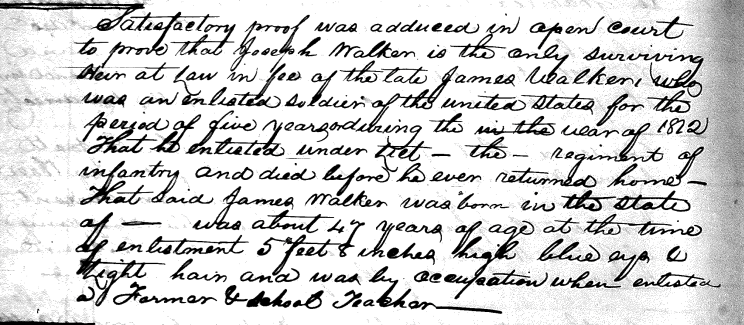 Satisfactory proof was adduced in open court
to prove that Joseph Walker is the only surviving
Heir at law in fee of the late James Walker, who
was an enlisted soldier of the united States for the
period of five years during the in the war of 1812
That he enlisted under - the - regiment of
infantry and died before he ever returned home -
That said James Walker was born in the state
of — was about 47 years of age at the time
of enlistment 5 feet 8 inches high blue eys &
light hair and was by occupation when enlisted
a Farmer & school Teacher —